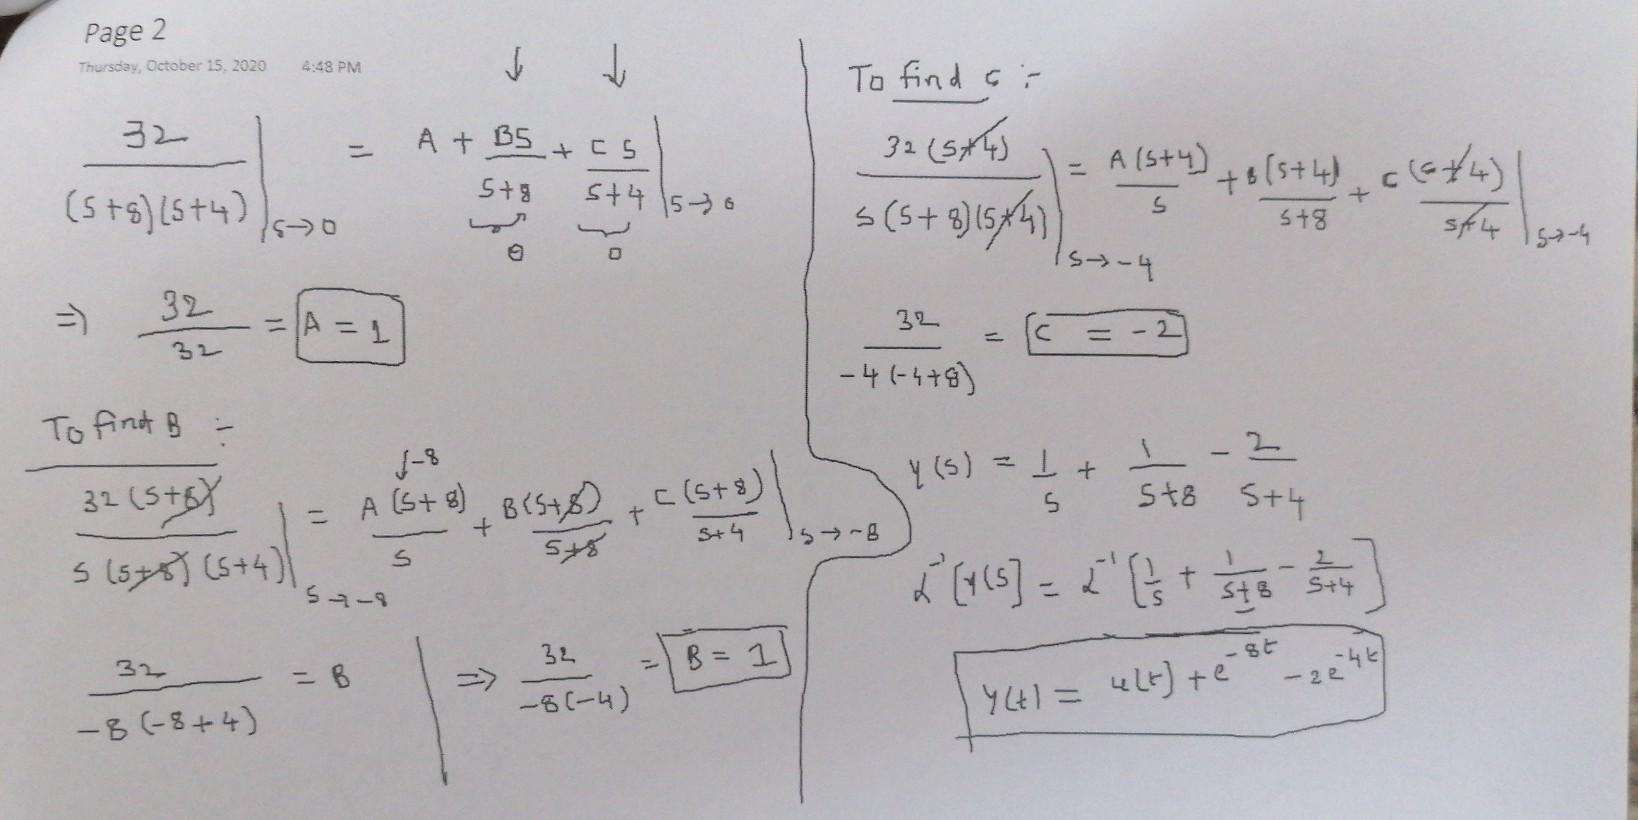 Page 2
Thursday, October 15, 2020 4:48 PM
↓ ↓
32/((s+8)(s+4)) |s→0 = A + BS/(s+8) + CS/(s+4) |s→0
0 0
⇒ 32/32 = A = 1
To find B :-
↓-8
32(s+8)/(s(s+8)(s+4)) |s→-8 = A(s+8)/s + B(s+8)/(s+8) + C(s+8)/(s+4) |s→-8
32/(-8(-8+4)) = B | ⇒ 32/(-8(-4)) = B = 1
To find C :-
32(s+4)/(s(s+8)(s+4)) |s→-4 = A(s+4)/s + B(s+4)/(s+8) + C(s+4)/(s+4) |s→-4
32/(-4(-4+8)) = C = -2
Y(s) = 1/s + 1/(s+8) - 2/(s+4)
L⁻¹[Y(s] = L⁻¹[1/s + 1/(s+8) - 2/(s+4)]
y(t) = u(t) + e^-8t - 2e^-4t